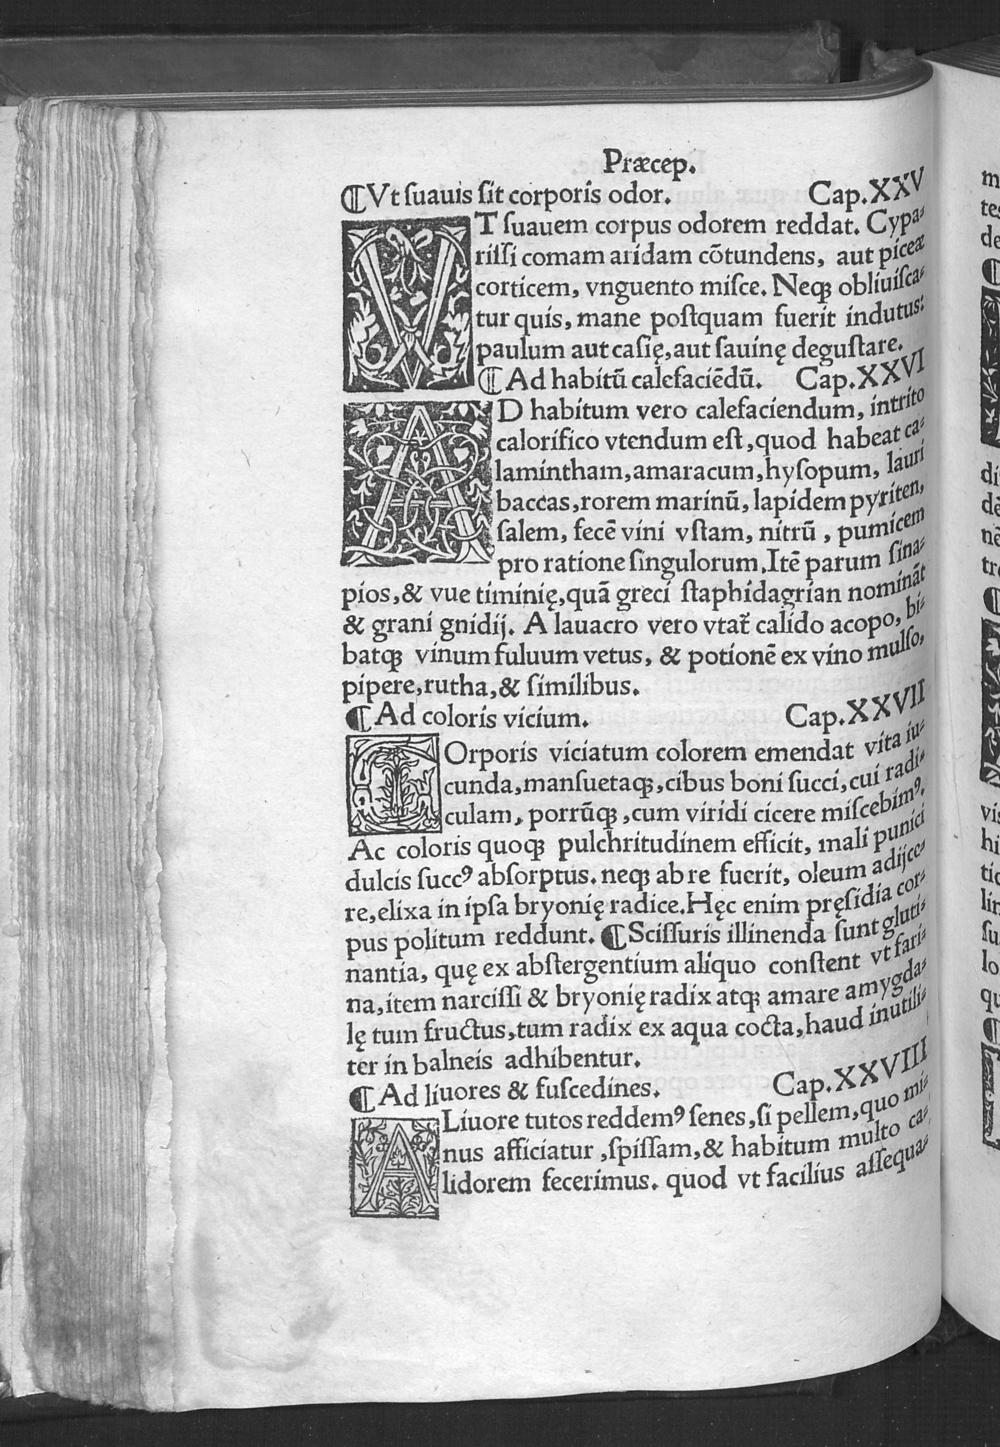 Præcep.
¶Vt ſuauis ſit corporis odor. Cap.XXV
VT ſuauem corpus odorem reddat. Cypa⸗
riſſi comam aridam cõtundens, aut piceæ
corticem, vnguento miſce. Neqꝫ obliuiſca⸗
tur quis, mane poſtquam fuerit indutus:
paulum aut caſię, aut ſauinę deguſtare.
¶Ad habitũ calefaciẽdũ. Cap.XXVI
AD habitum vero calefaciendum, intrito
calorifico vtendum eſt, quod habeat ca⸗
lamintham, amaracum, hyſopum, lauri
baccas, rorem marinũ, lapidem pyriten,
ſalem, fecẽ vini vſtam, nitrũ, pumicem
pro ratione ſingulorum. Itẽ parum ſina⸗
pios, & vue timinię, quã greci ſtaphidagrian nominãt
& grani gnidij. A lauacro vero vtat᷑ calido acopo, bi⸗
batqꝫ vinum fuluum vetus, & potionẽ ex vino mulſo,
pipere, rutha, & ſimilibus.
¶Ad coloris vicium. Cap.XXVII
COrporis viciatum colorem emendat vita iu⸗
cunda, manſuetaqꝫ, cibus boni ſucci, cui radi⸗
culam, porrũqꝫ, cum viridi cicere miſcebimꝰ.
Ac coloris quoqꝫ pulchritudinem efficit, mali punici
dulcis ſuccꝰ abſorptus. neqꝫ ab re fuerit, oleum adijce⸗
re, elixa in ipſa bryonię radice. Hęc enim pręſidia cor⸗
pus politum reddunt. ¶Sciſſuris illinenda ſunt gluti⸗
nantia, quę ex abſtergentium aliquo conſtent vt fari⸗
na, item narciſſi & bryonię radix atqꝫ amare amygda⸗
lę tum fructus, tum radix ex aqua cocta, haud inutili⸗
ter in balneis adhibentur.
¶Ad liuores & fuſcedines. Cap.XXVIII
A Liuore tutos reddemꝰ ſenes, ſi pellem, quo mi⸗
nus afficiatur, ſpiſſam, & habitum multo ca⸗
lidorem fecerimus. quod vt facilius aſſequa⸗